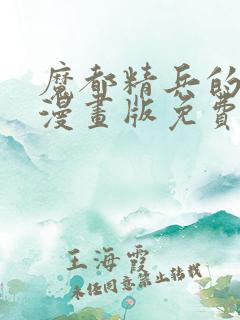 魔都精兵的
漫畫版免費
王海霞
未经同意禁止转载